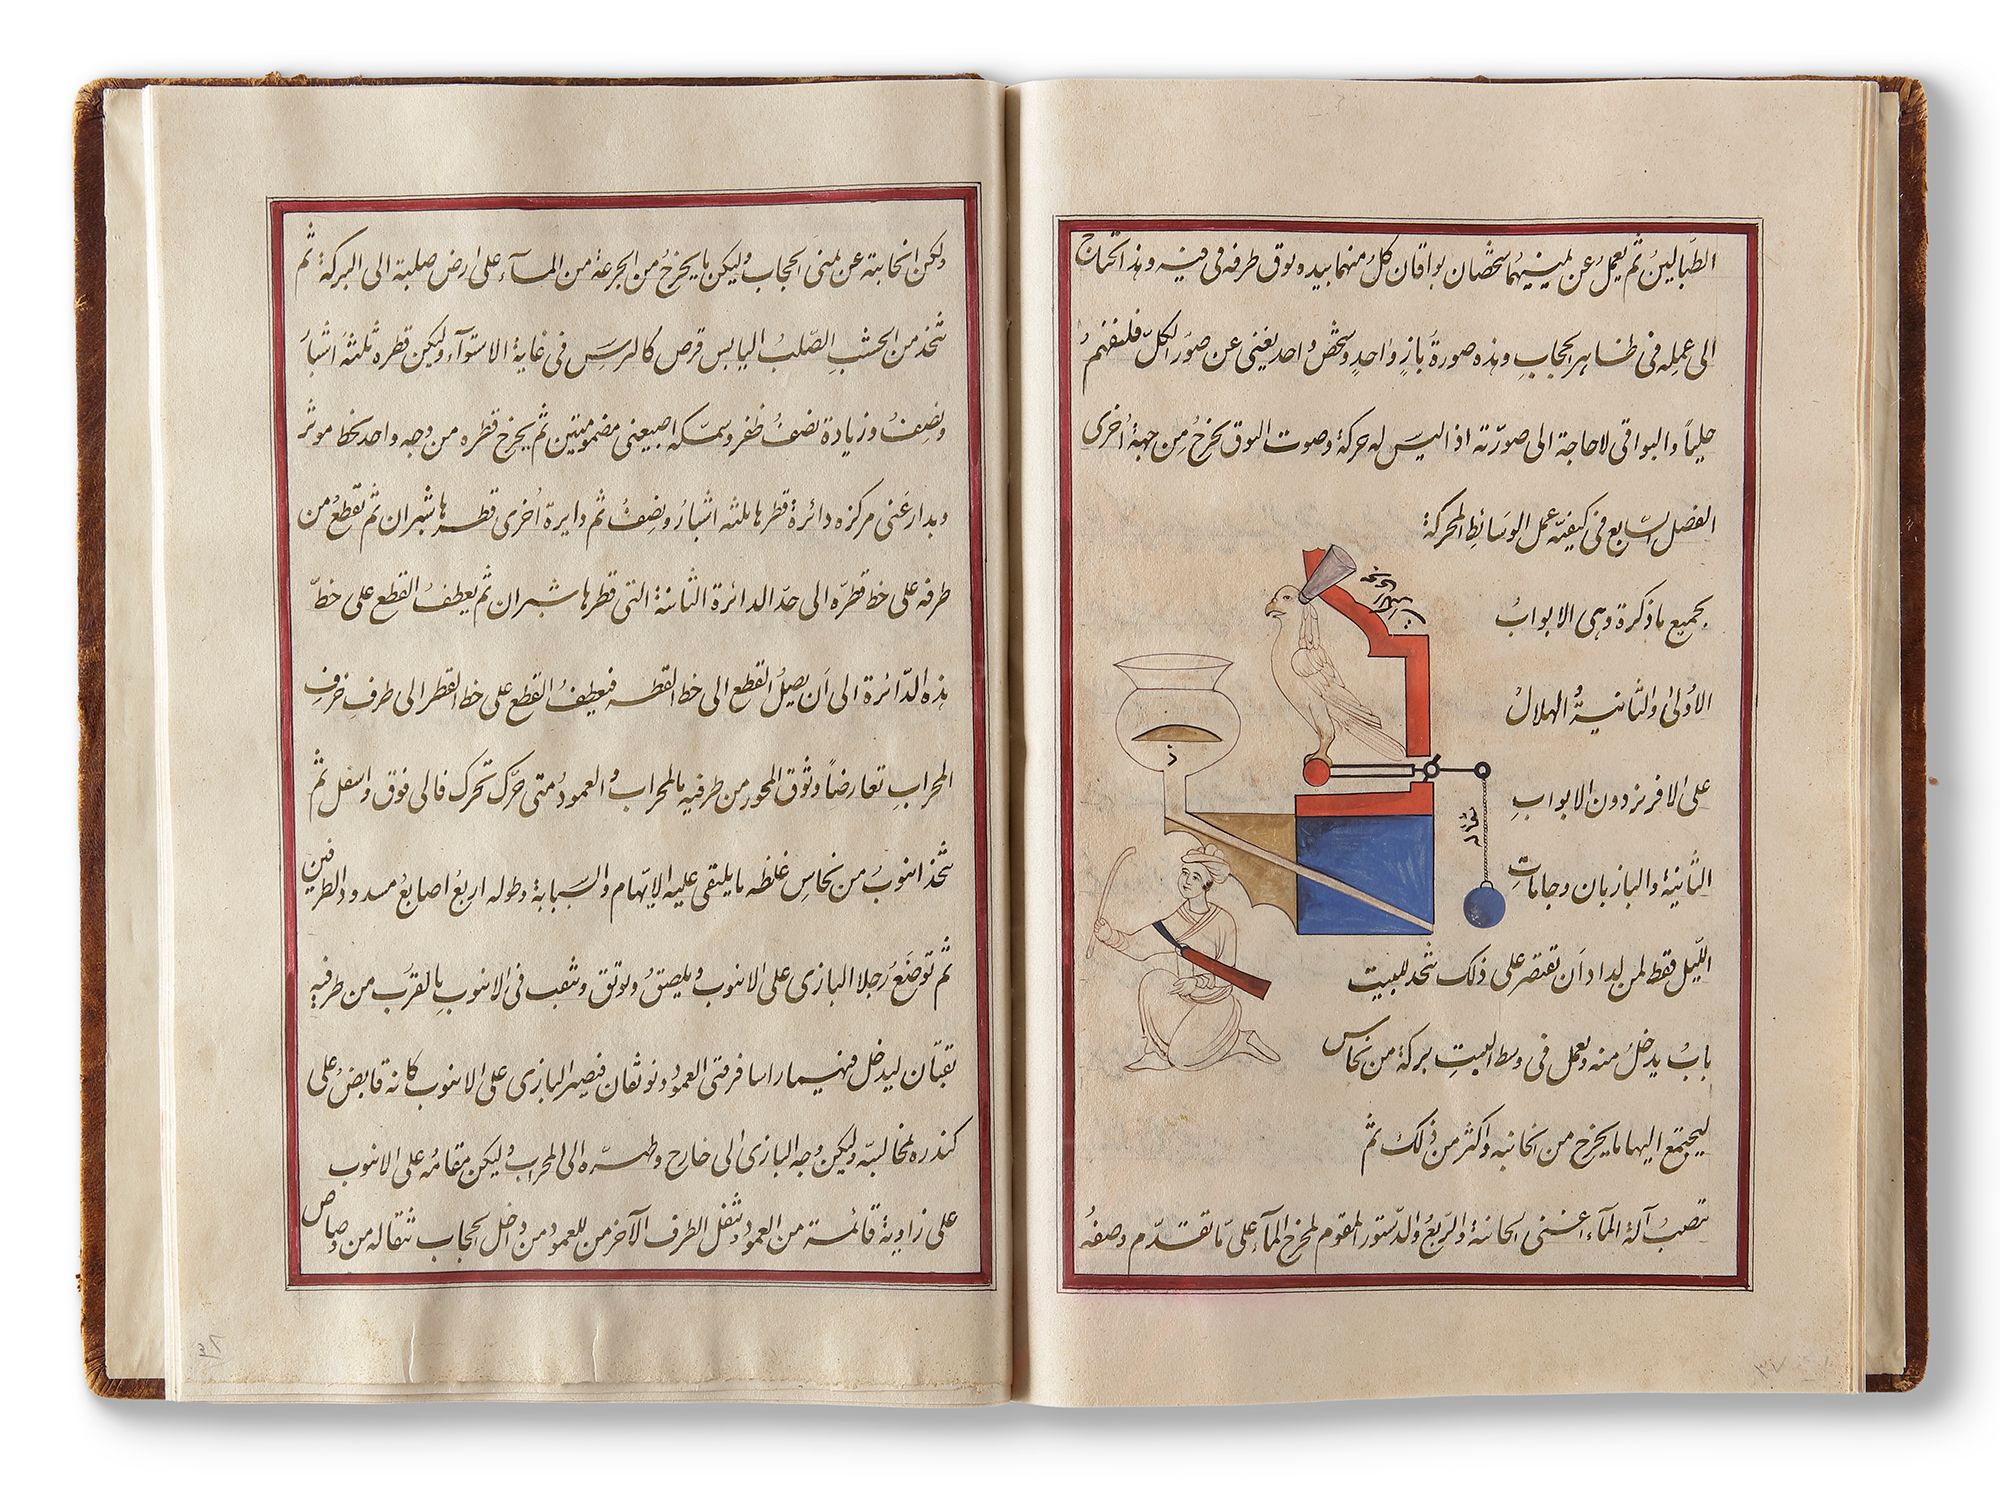 الطبالين ثم يعمل عن يمينيهما شخصان بواقان كل منهما بيده بوق طرفه في فيه وهذا تحتاج
الى عمله في ظاهر الحجاب وهذه صورة باز واحد وشخص واحد يغني عن صور الكل فليفهم
جليا والبواقي لا حاجة الى صورته اذ اليس له حركة وصوت البوق يخرج من جهة أخرى
الفصل السابع في كيفية عمل الوسائط المحركة
بجميع ما ذكرة وهي الابواب
الأولى والثانية والهلال
على الافريز دون الابواب
الثانية والبازيان وجامات
الليل فقط لمن اراد أن يقتصر على ذلك تتخد للبيت
باب يدخل منه ويعمل في وسط البيت بركة من نحاس
ليجتمع اليها ما يخرج من الخانبه واكثر من ذلك ثم
تنصب آلة الماء اعني الخانبة والربع والدستور المقوم لمخرج الماء على ما تقدم وصفه
ولكن الخانبة عن يمنى الحجاب وليكن ما يخرج من الجزعة من الماء على ارض صلبة الى البركة ثم
تتخذ من الخشب الصلب اليابس قرص كالترس في غاية الاستوآء وليكن قطره ثلثة اشبار
ونصف وزيادة نصف ظفر وسمكه اصبعين مضمومتين ثم يخرج قطره من وجه واحد بخط موثر
ويدار عن مركزه دائرة قطرها ثلثه اشبار ونصف ثم دايرة أخرى قطرها شبران ثم تقطع من
طرفه على خط قطره الى حد الدائرة الثانية التي قطرها شبران ثم يعطف القطع على خط
هذه الدائرة الى أن يصل القطع الى خط القطر فيعطف القطع على خط القطر الى طرف حرف
المحراب تعارضا وثوق المحور من طرفيه بالمحراب والعمود متى حرك تحرك فالى فوق واسفل ثم
تتخذ انبوب من نحاس غلظه ما يلتقي عليه الابهام والسبابة وطوله اربع اصابع مسدود الطرفين
ثم توضع رجلا البازي على الانبوب ويلصق ويوثق وتثقب في الانبوب بالقرب من طرفيه
ثقبان ليدخل فيهما راسا فرقتي العمود ويوثقان فيصير البازي على الانبوب كانه قابض على
كندره بمخالبه وليكن وجه البازي الى خارج وظهره الى المحراب وليكن مقامه على الانبوب
على زاوية قائمة من العمود ويثقل الطرف الآخر من للعمود من داخل الحجاب ثقالة من رصاص